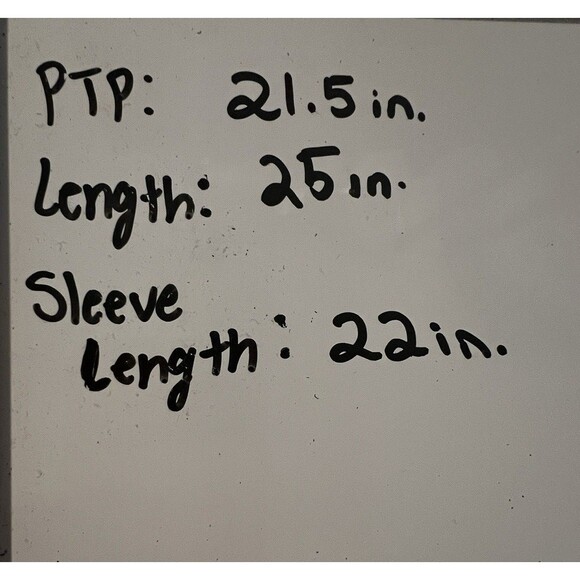 PTP: 21.5 in.
Length: 25 in.
Sleeve
Length: 22 in.